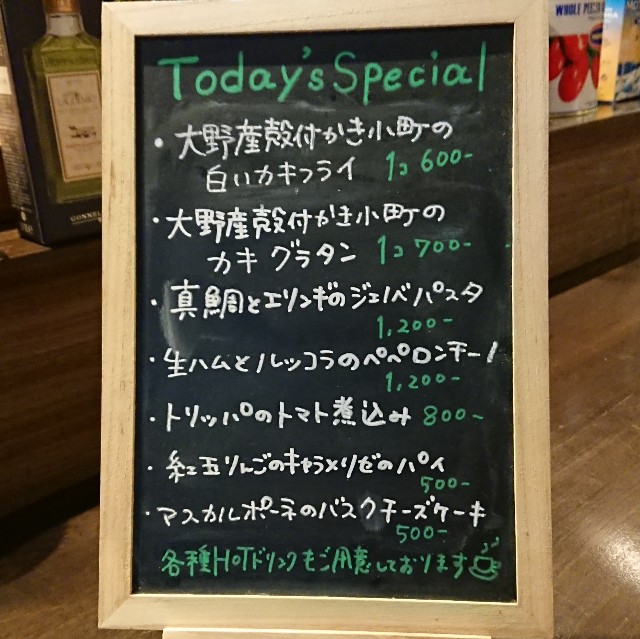 WHOLE PEELED
Today's Special
・大野産殻付かき小町の
白いカキフライ 1コ 600-
・大野産殻付かき小町の
カキグラタン 1コ 700-
・真鯛とエリンギのジェノベパスタ
1,200-
・生ハムとルッコラのペペロンチーノ
1,200-
・トリッパのトマト煮込み 800-
・紅玉りんごのキャラメリゼのパイ
500-
・マスカルポーネのバスクチーズケーキ
500-
各種HOTドリンクもご用意しております